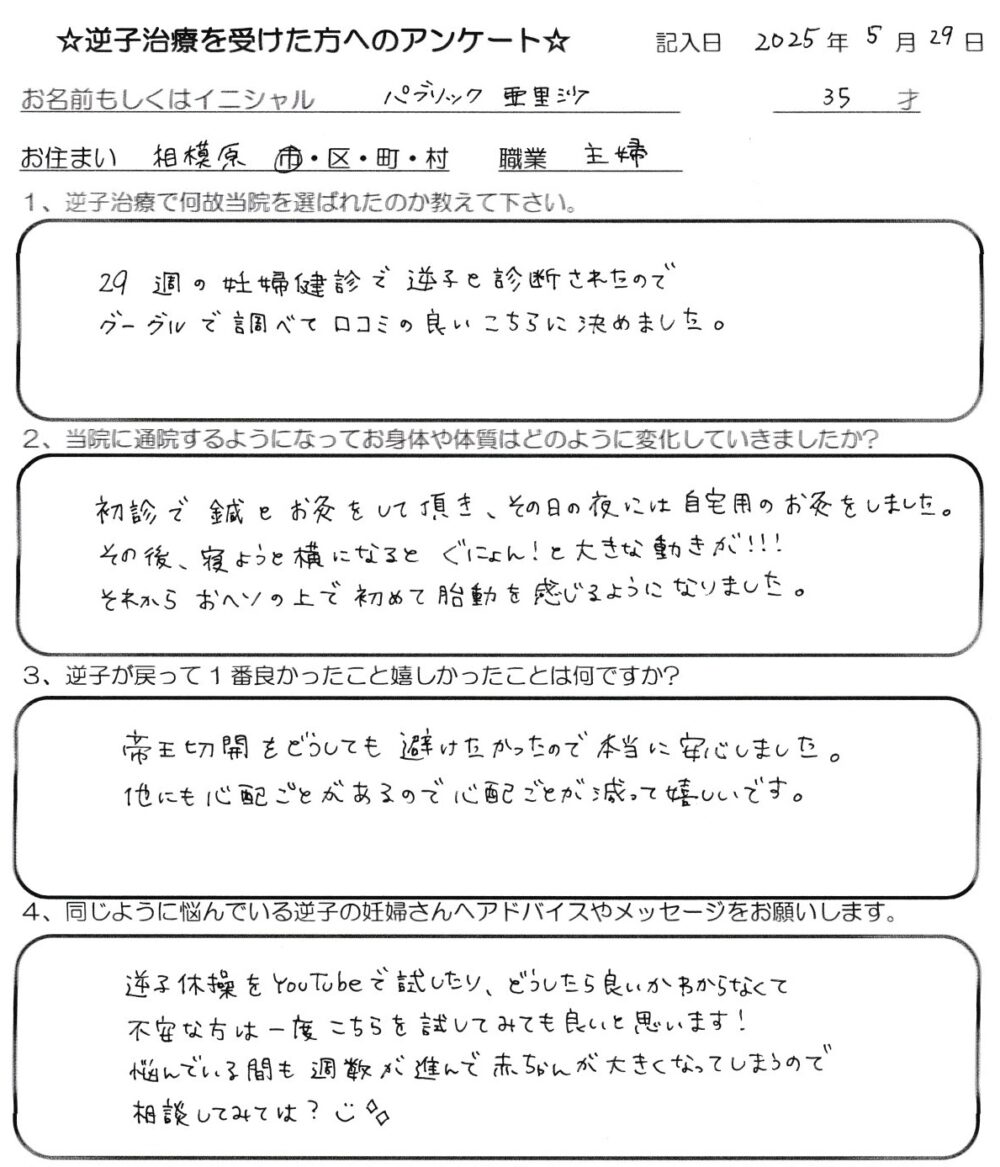 ☆逆子治療を受けた方へのアンケート☆ 記入日 2025年 5月 29日
お名前もしくはイニシャル パブリック 亜里 35 才
お住まい 相模原 市・区・町・村 職業 主婦
1、逆子治療で何故当院を選ばれたのか教えて下さい。
29週の妊婦健診で逆子と診断されたので
グーグルで調べて口コミの良いこちらに決めました。
2、当院に通院するようになってお身体や体質はどのように変化していきましたか?
初診で鍼とお灸をして頂き、その日の夜には自宅用のお灸をしました。
その後、寝ようと横になると ぐにょん!と大きな動きが!!!
それから おヘソの上で初めて胎動を感じるようになりました。
3、逆子が戻って1番良かったこと嬉しかったことは何ですか?
帝王切開をどうしても避けたかったので本当に安心しました。
他にも心配ごとがあるので心配ごとが減って嬉しいです。
4、同じように悩んでいる逆子の妊婦さんへアドバイスやメッセージをお願いします。
逆子体操をYouTubeで試したり、どうしたら良いかわからなくて
不安な方は一度こちらを試してみても良いと思います!
悩んでいる間も週数が進んで赤ちゃんが大きくなってしまうので
相談してみては?